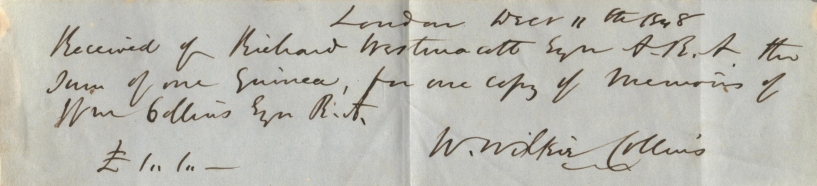 London Decr 11th 1848
Received of Richard Westmacott Esqr A.R.A the
Sum of one Guinea, for one copy of Memoirs of
Wm Collins Esqr R.A.
£1,, 1,, —
W. Wilkie Collins